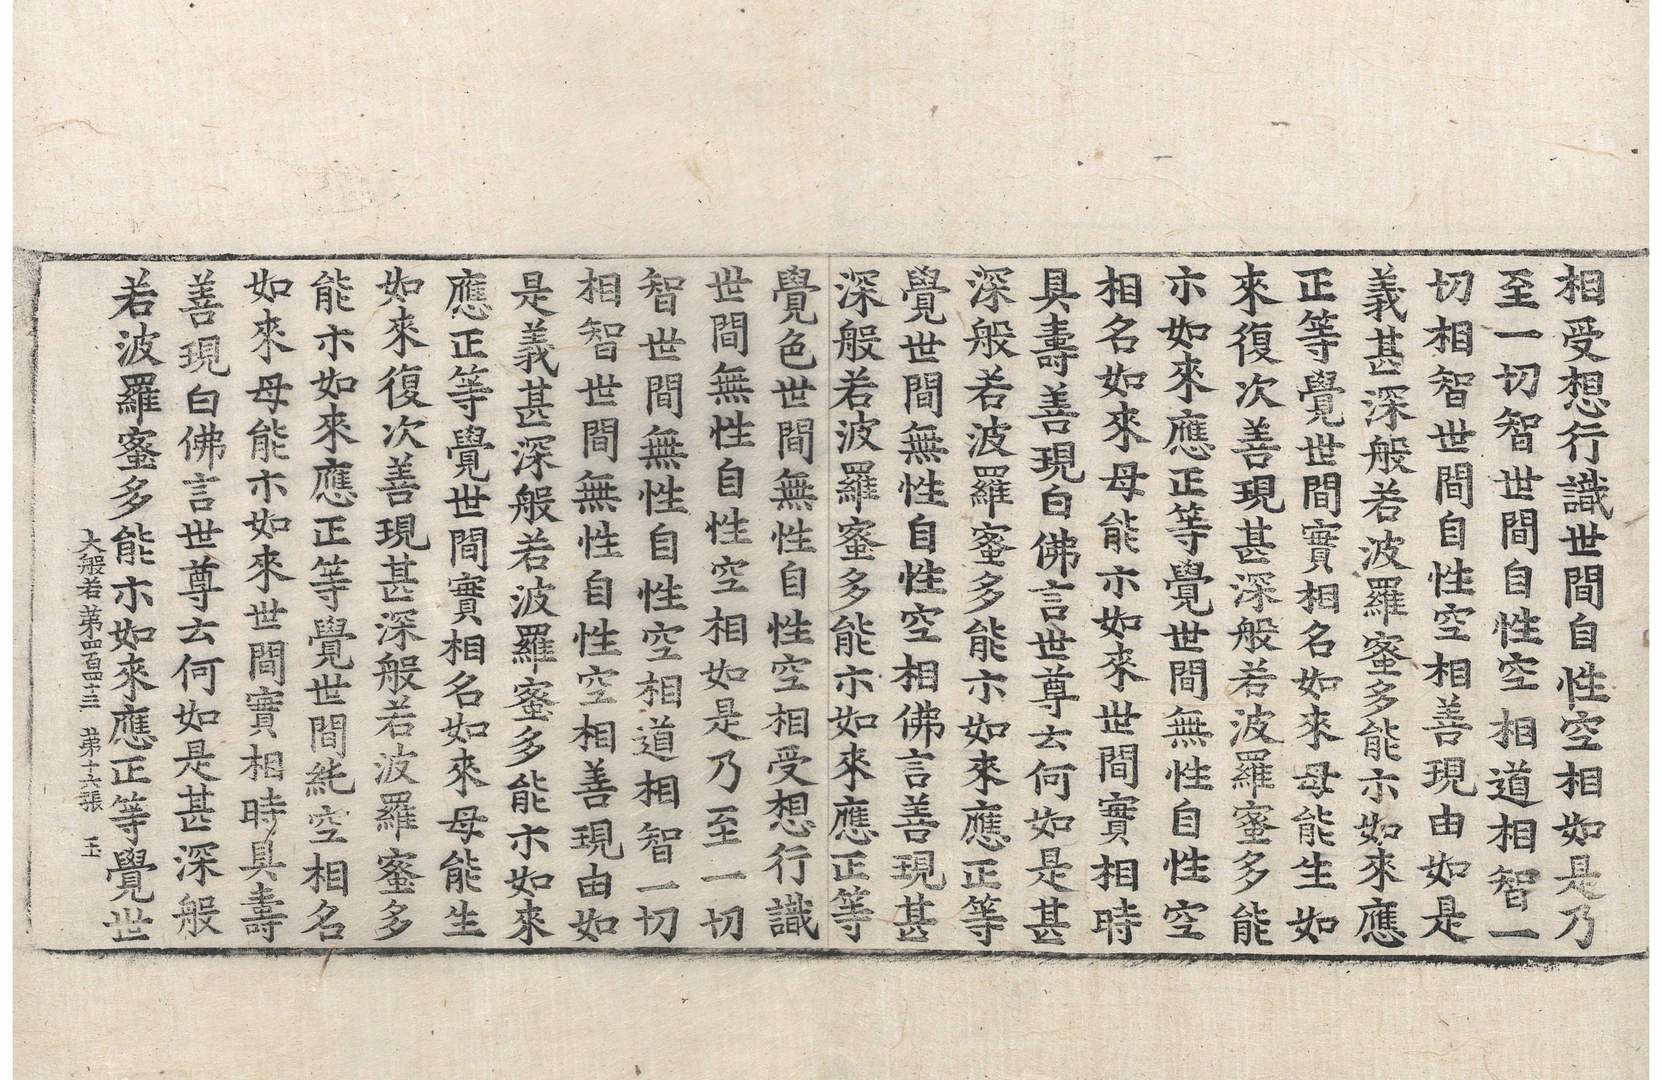 相受想行識世間自性空相如是乃
至一切智世間自性空相道相智一
切相智世間自性空相善現由如是
義甚深般若波羅蜜多能尒如來應
正等覺世間實相名如來母能生如
來復次善現甚深般若波羅蜜多能
尒如來應正等覺世間無性自性空
相名如來母能尒如來世間實相時
具壽善現白佛言世尊云何如是甚
深般若波羅蜜多能尒如來應正等
覺世間無性自性空相佛言善現甚
深般若波羅蜜多能尒如來應正等
覺色世間無性自性空相受想行識
世間無性自性空相如是乃至一切
智世間無性自性空相道相智一切
相智世間無性自性空相善現由如
是義甚深般若波羅蜜多能尒如來
應正等覺世間實相名如來母能生
如來復次善現甚深般若波羅蜜多
能尒如來應正等覺世間純空相名
如來母能尒如來世間實相時具壽
善現白佛言世尊云何如是甚深般
若波羅蜜多能尒如來應正等覺世
大般若第四百四十三 第十六張 玉